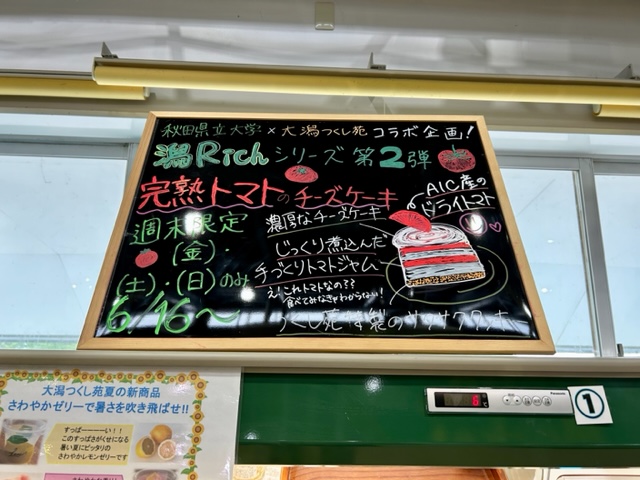 秋田県立大学 × 大潟つくし苑 コラボ企画!
潟Richシリーズ 第2弾
完熟トマトのチーズケーキ
AIC産の
ドライトマト
週末限定
(金)・
(土)・(日)のみ
6/16〜
濃厚なチーズケーキ
じっくり煮込んだ
手づくりトマトジャム
え!これトマトなの??
食べてみなきゃわからない!
つくし苑特製のサクサククッキー
大潟つくし苑夏の新商品
さわやかゼリーで暑さを吹き飛ばせ!!
すっぱーーーーい!!
このすっぱさがくせになる
暑い夏にピッタリの
さわやかレモンゼリーです
Panasonic
6
①